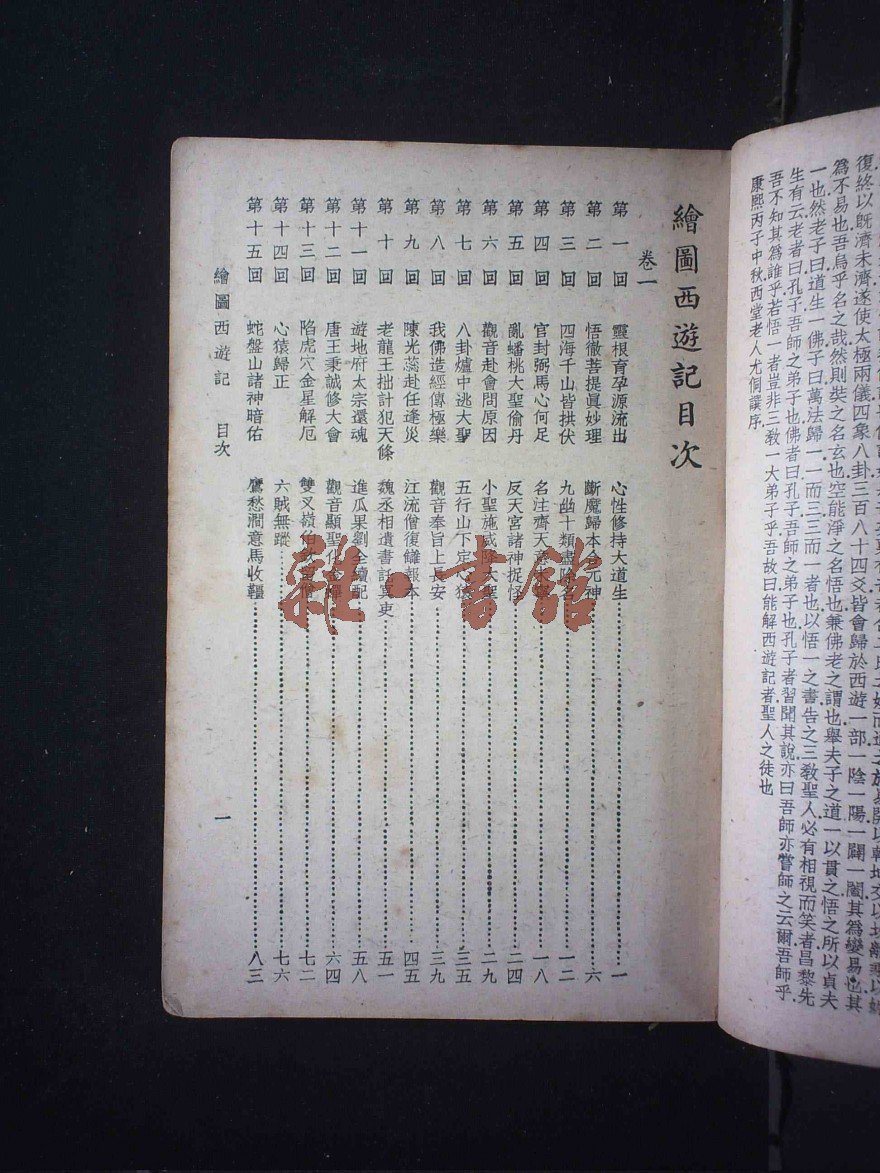 復終以旣濟未濟遂使太極兩儀四象八卦三百八十四爻皆會歸於西遊一部一陰一陽一闢一闔其爲變易也其
爲不易也吾烏乎名之哉然則裝之名玄也空能淨之名悟也兼佛老之謂也舉夫子之道一以貫之悟之所以貞夫
一也然老子曰道生一佛子曰萬法歸一一而三三而一者也以悟一之書告之三敎聖人必有相視而笑者昌黎先
生有云老者曰孔子吾師之弟子也佛者曰孔子吾師之弟子也孔子者習聞其說亦曰吾師亦嘗師之云爾吾師乎
吾不知其爲誰乎若悟一者豈非三敎一大弟子乎吾故曰能解西遊記者聖人之徒也
康熙丙子中秋西堂老人尤侗譔序
繪圖西遊記目次
卷一
第一回 靈根育孕源流出 心性修持大道生 一
第二回 悟徹菩提眞妙理 斷魔歸本合元神 六
第三回 四海千山皆拱伏 九幽十類盡除名 一二
第四回 官封弼馬心何足 名注齊天意 一八
第五回 亂蟠桃大聖偷丹 反天宮諸神捉怪 二四
第六回 觀音赴會問原因 小聖施威降大聖 二九
第七回 八卦爐中逃大聖 五行山下定心猿 三五
第八回 我佛造經傳極樂 觀音奉旨上長安 三九
第九回 陳光蕊赴任逢災 江流僧復讎報本 四五
第十回 老龍王拙計犯天條 魏丞相遺書託冥吏 五一
第十一回 遊地府太宗還魂 進瓜果劉全續配 五八
第十二回 唐王秉誠修大會 觀音顯聖化金蟬 六四
第十三回 陷虎穴金星解厄 雙叉嶺伯 僧 七二
第十四回 心猿歸正 六賊無蹤 七六
第十五回 蛇盤山諸神暗佑 鷹愁澗意馬收韁 八三
繪圖西遊記 目次 一
雜·書館